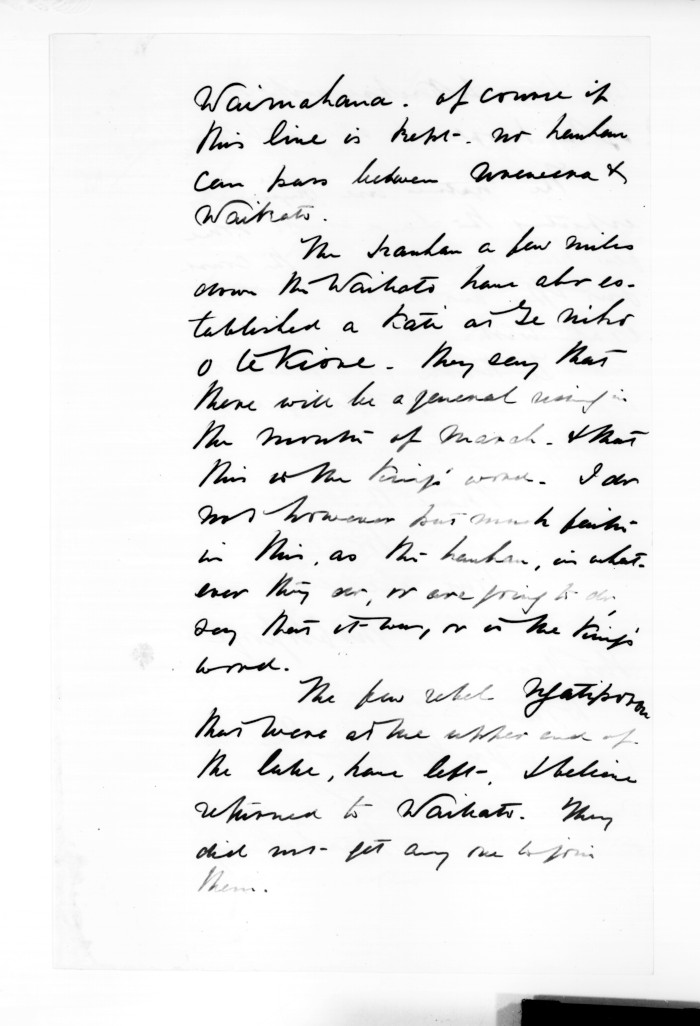 Waimahana. of course if
this line is kept. no hauhau
can pass between Urewera &
Waikato.
The hauhau a few miles
down the Waikato have also es-
tablished a Kati at Te niho
o te Kiore. They say that
there will be a general rising in
the month of March. & that
this is the King's word. I do
not however put much faith
in this, as the hauhau, in what-
ever they do, or are going to do,
say that it was, or is the King's
word.
The few rebel Ngatiporou
that were at the upper end of
the lake, have left, & believe
returned to Waikato. They
did not get any one to join
them.